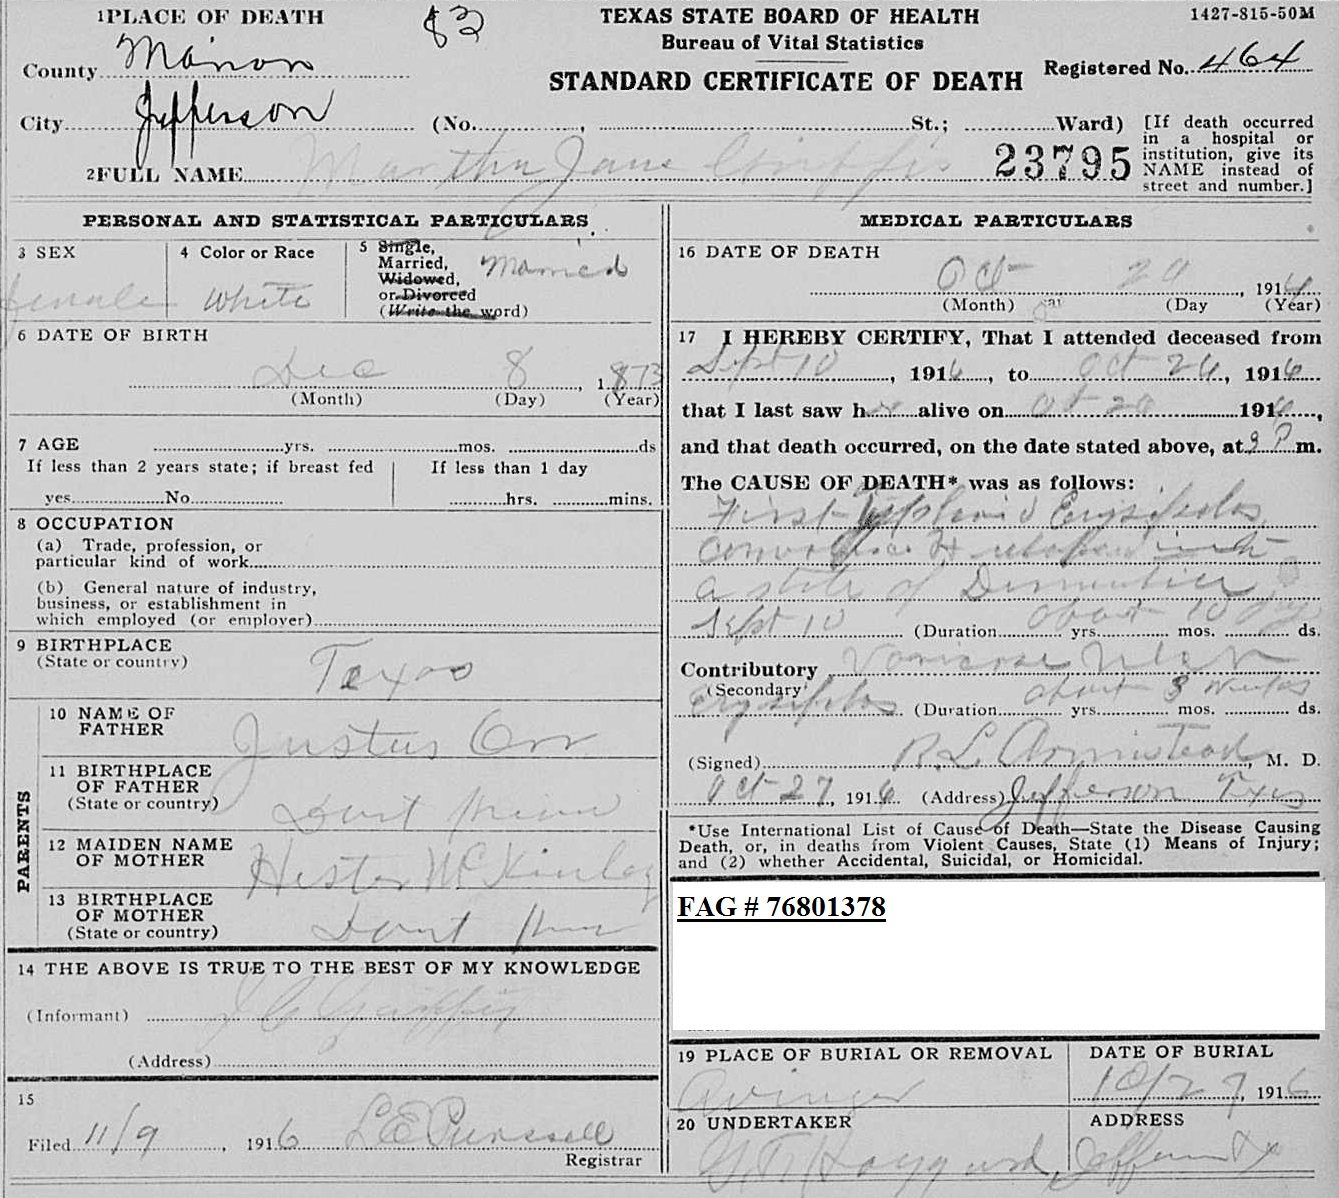 1 PLACE OF DEATH
83
TEXAS STATE BOARD OF HEALTH
1427-815-50M
Bureau of Vital Statistics
County Marion
STANDARD CERTIFICATE OF DEATH
Registered No. 464
City Jefferson (No. , St.; Ward)
[If death occurred
in a hospital or
institution, give its
NAME instead of
street and number.]
2 FULL NAME Martha Jane
23795
PERSONAL AND STATISTICAL PARTICULARS
3 SEX
female
4 Color or Race
White
5 Single,
Married,
Widowed,
or Divorced
(Write the word)
Married
6 DATE OF BIRTH
Dec 8, 1873
(Month) (Day) (Year)
7 AGE yrs. mos. ds
If less than 2 years state; if breast fed
yes No
If less than 1 day
hrs. mins.
8 OCCUPATION
(a) Trade, profession, or
particular kind of work
(b) General nature of industry,
business, or establishment in
which employed (or employer)
9 BIRTHPLACE
(State or country)
Texas
PARENTS
10 NAME OF
FATHER
Justus Orr
11 BIRTHPLACE
OF FATHER
(State or country)
Dont know
12 MAIDEN NAME
OF MOTHER
Hester McKinley
13 BIRTHPLACE
OF MOTHER
(State or country)
Dont know
14 THE ABOVE IS TRUE TO THE BEST OF MY KNOWLEDGE
(Informant)
(Address)
15
Filed 11/9, 1916
Registrar
MEDICAL PARTICULARS
16 DATE OF DEATH
Oct , 191
(Month) (Day (Year)
17 I HEREBY CERTIFY, That I attended deceased from
Sept 10, 1916, to Oct 26, 1916
that I last saw her alive on Oct 191 ,
and that death occurred, on the date stated above, at 9 P m.
The CAUSE OF DEATH* was as follows:
First Erysipelas
a state of
Sept 10 (Duration about 10 yrs. mos. ds.
Contributory Varicose Ulcer
(Secondary)
Erysipelas (Duration about 3 weeks yrs. mos. ds.
(Signed) R. L. Armistead, M. D.
Oct 27, 1916 (Address) Jefferson Texas
*Use International List of Cause of Death—State the Disease Causing
Death, or, in deaths from Violent Causes, State (1) Means of Injury;
and (2) whether Accidental, Suicidal, or Homicidal.
FAG # 76801378
19 PLACE OF BURIAL OR REMOVAL
Avinger
DATE OF BURIAL
10/27, 1916
20 UNDERTAKER
ADDRESS